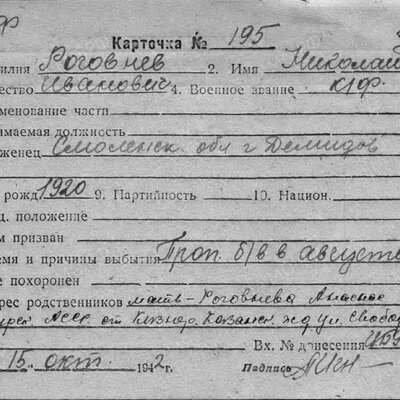 Карточка № 195
илия Роговнев 2. Имя Николай
ество Иванович 4. Военное звание к/ф
менование части
имаемая должность
женец Смоленск. обл г Демидов
рожд 1920 9. Партийность 10. Национ.
ц. положение
м призван
емя и причины выбытия Проп. б/в в августе
е похоронен
рес родственников мать - Роговнева
АССР. от Казанск. ж д ул. Свобод
Вх. № донесения
15 окт 1942 г. Подпись